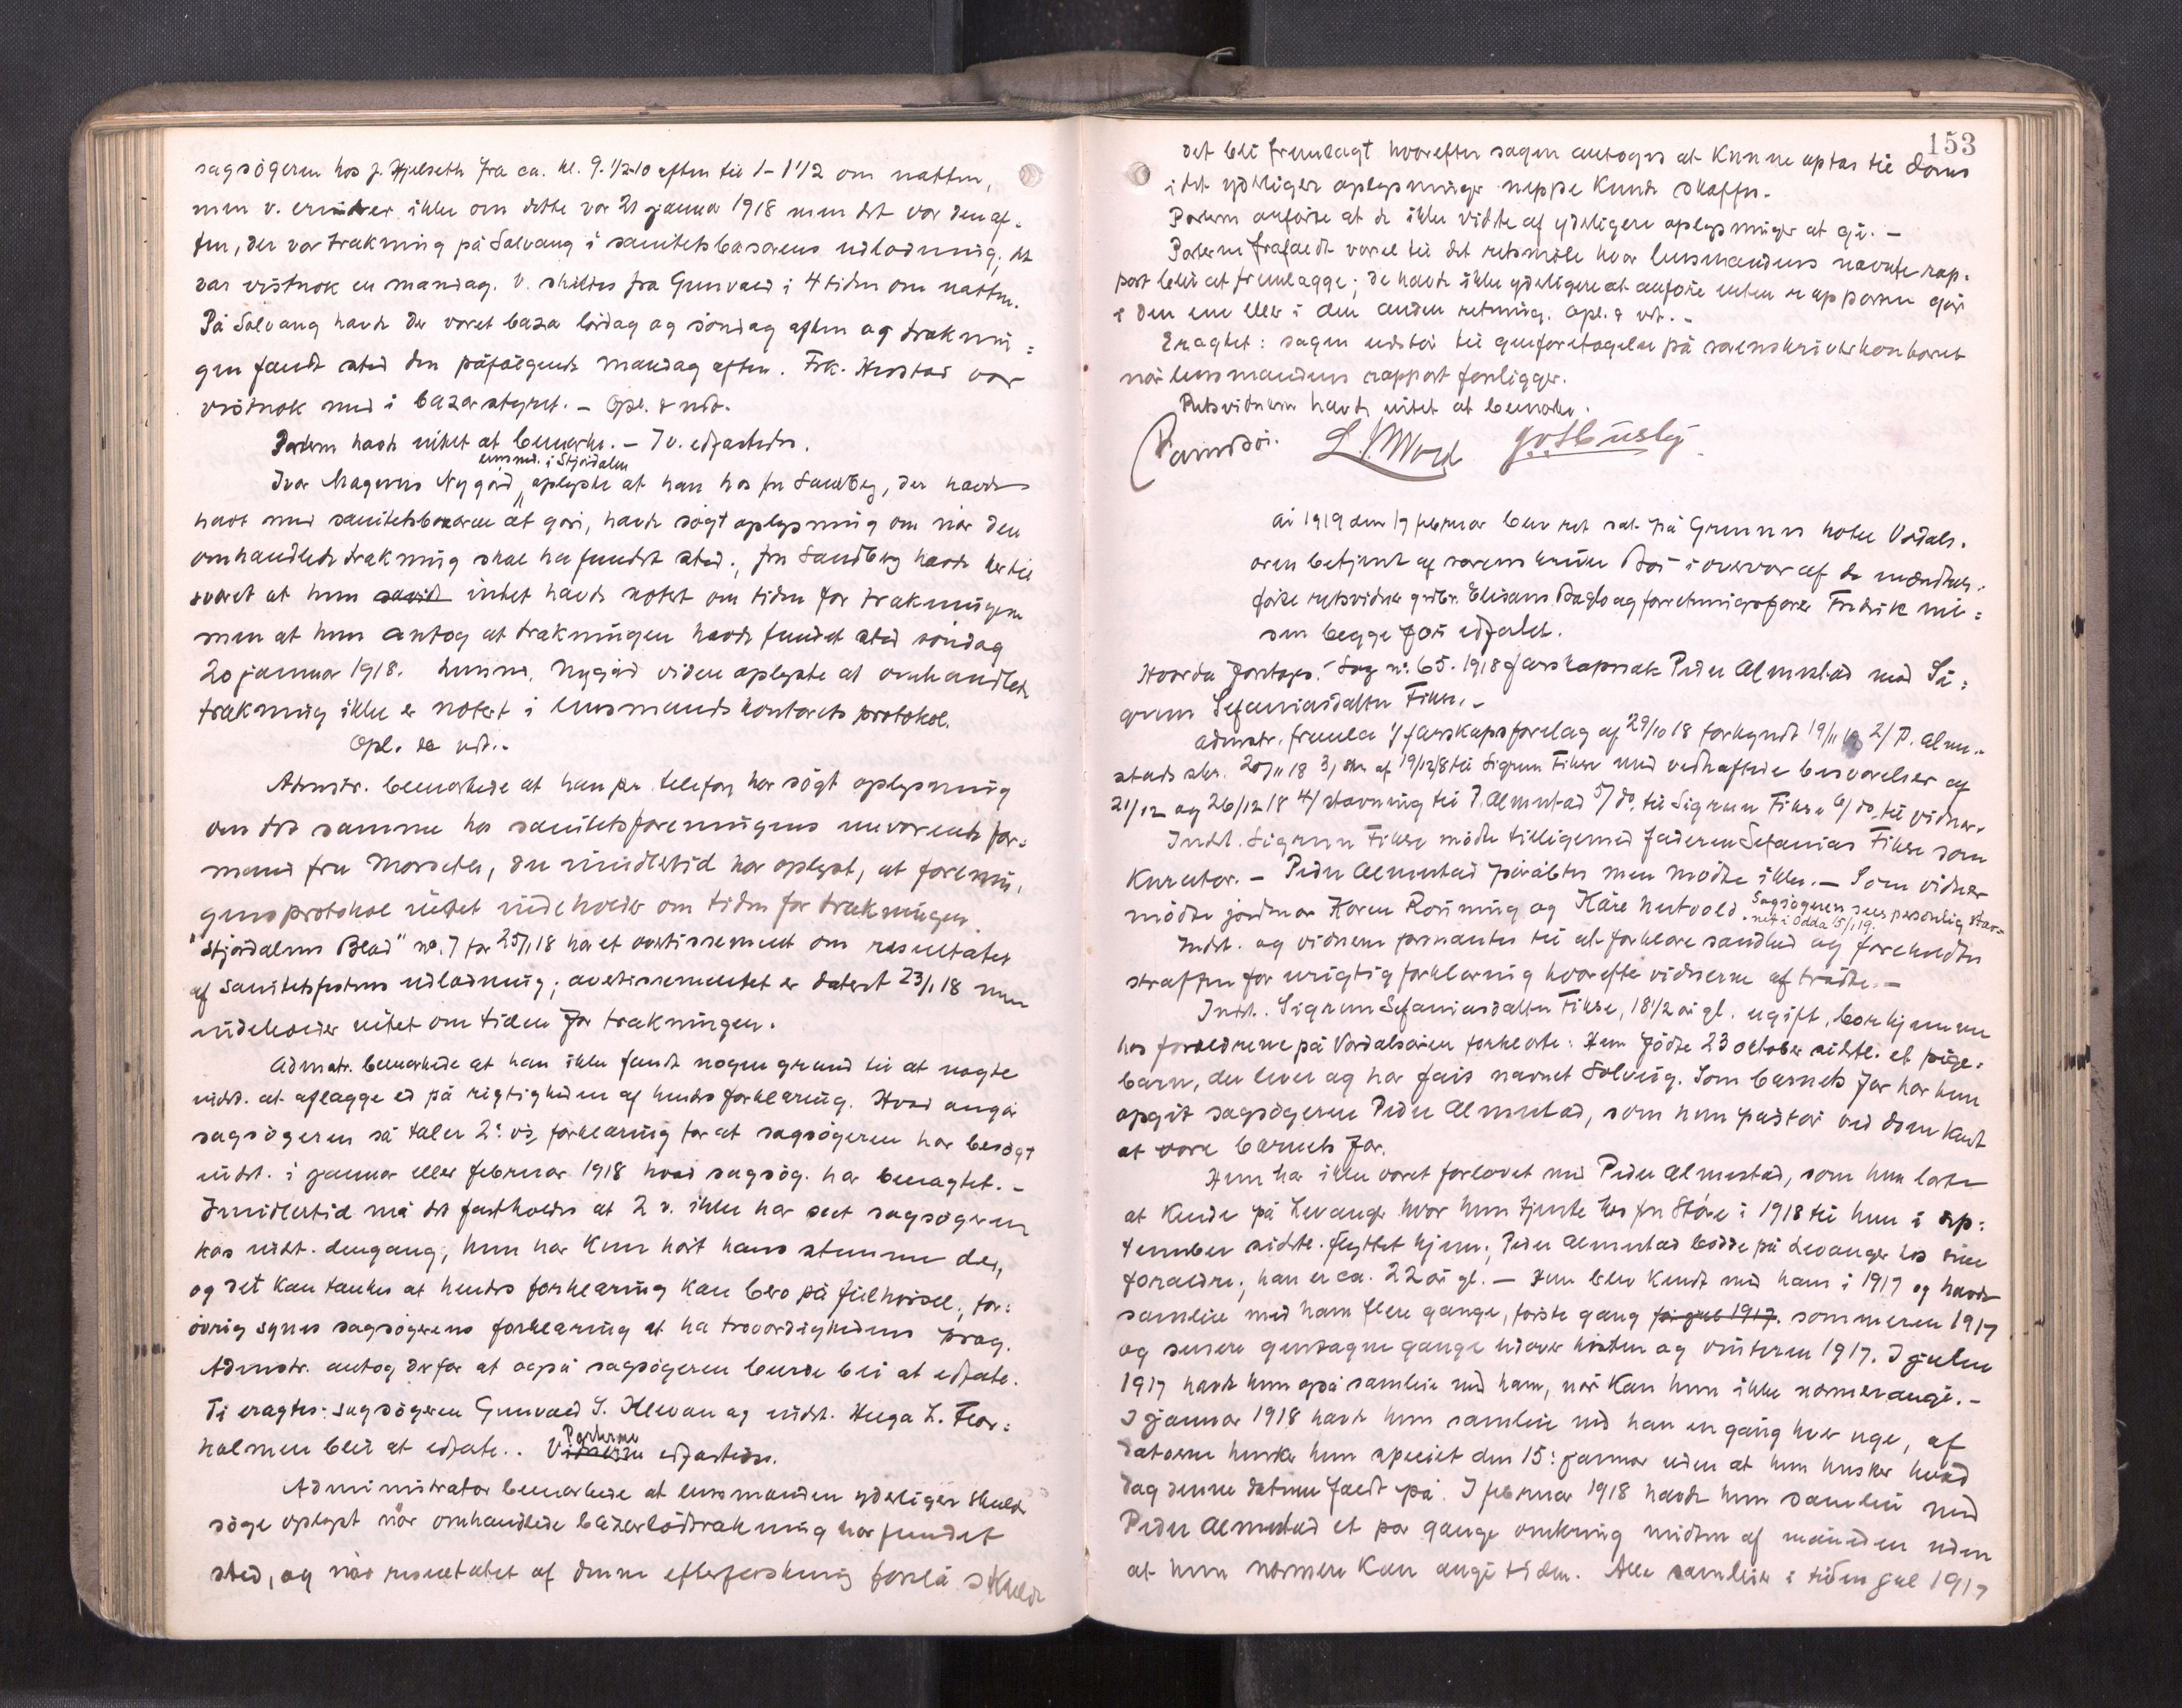 sagsögeren hos J. Hjelseth fra ca. kl. 9 1/2-10 aften til 1-1 1/2 om natten,
men v. erindrer ikke om dette var 21 januar 1918 men det var den af-
ten, der var trækning på Solvang i sanitetsbasarens udlodning; det
var vistnok en mandag. V. skiltes fra Gunvald i 4 tiden om natten.
På Solvang havde der været bazar lördag og söndag aften og træknin=
gen fandt sted den påfölgende mandag aften. Frk. var
vistnok med i bazarstyret. - Opl. & vedt.
Parterne havde intet at bemærke. - 7 v. edfæstedes.
lensmd. i Stjördalen
Ivar Magnus Nygård oplyste at han hos fru Sandberg, der havde
havt med sanitetsbazaren at göre, havde sögt oplysning om når den
omhandlede trækning skal ha fundet sted; fru Sandberg havde hertil
svaret at hun intet havde notert om tiden for trækningen
men at hun antog at trækningen havde fundet sted söndag
20 januar 1918. Lensmd. Nygård videre oplyste at omhandlede
trækning ikke er notert i lensmandskontorets protokol.
Opl. & vedt.
Admstr. bemærkede at han pr. telefon har sögt oplysning
om det samme hos sanitetsforeningens nuværende for=
mand fru Morset, der imidlertid har oplyst, at forenin-
gens protokol intet indeholder om tiden for trækningen.
"Stjördalens Blad" no. 7 for 25/1 18 har et avertissement om resultatet
af sanitetsfestens udlodning; avertissementet er datert 23/1 18 men
indeholder intet om tiden for trækningen.
Admstr. bemærkede at han ikke fandt nogen grund til at nægte
indst. at aflægge ed på rigtigheden af hendes forklaring. Hvad angår
sagsögeren så taler 2: vs forklaring for at sagsögeren har besögt
indst. i januar eller februar 1918 hvad sagsög. har benægtet. -
Imidlertid må det fastholdes at 2 v. ikke har seet sagsögeren
hos indst. dengang; hun har kun hört hans stemme der,
og det kan tænkes at hendes forklaring kan bero på feilhörsel; for=
övrig synes sagsögerens forklaring at ha troværdighedens præg.
Admstr. antog derfor at også sagsögeren burde bli at edfæste.
Ti eragtes: sagsögeren Gunvald S. Klevan og indst. Helga L.
holmen blir at edfæste. Vidnerne Parterne edfæstedes.
Administrator bemærkede at lensmanden yderligere skulde
söge oplyst når omhandlede bazarlodtrækning har fundet
sted, og når resultatet af denne efterforskning forelå skulde
153
det bli fremlagt hvorefter sagen antoges at kunne optas til doms
idet yderligere oplysninger neppe kunde skaffes.
Parterne anförte at de ikke vidste af yderligere oplysninger at gi. -
Parterne frafaldt varsel til det retsmöte hvor lensmandens nævnte rap-
port blir at fremlægge; de havde ikke yderligere at anföre enten rapporten går
i den ene eller i den anden retning. Opl. & vedt. -
Eragtet: sagen udstår til genforetagelse på sorenskriverkontoret
når lensmandens rapport foreligger.
Retsvidnerne havde intet at bemærke.
År 1919 den 17 februar blev ret sat på Grunns hotel Verdals-
ören betjent af sorenskriver Böi i overvær af de mandtals-
förte retsvidner grdbr. Elisæus Baglo og forretningsförer Fredrik Nil=
sen begge för edfæstet.
Hvorda foretoges: Sag nr. 65. 1918 farskapssak Peder Almestad mod Si=
grun Sefaniasdatter Fikse. -
Admstr. fremla 1/ farskapsforelæg af 29/10 18 forkyndt 19/11 18 2/ P. Alme-
stads skr. 20/11 18 3/ skr. af 19/12 18 til Sigrun Fikse med vedhæftede besvarelser af
21/12 og 26/12 18 4/ stævning til P. Almestad 5/ do. til Sigrun Fikse 6/ do. til vidner.
Indst. Sigrun Fikse mödte tilligemed faderen Sefanias Fikse som
kurator. - Peder Almestad påråbtes men mödte ikke. - Som vidner
mödte jordmor Karen Rönning og Kåre Sagsögeren sees personlig stæv=
net i Odda 15/1 19.
Indst. og vidnerne formantes til at forklare sandhed og foreholdtes
straffen for urigtig forklaring hvorefter vidnerne aftrådte. -
Indst. Sigrun Sefaniasdatter Fikse, 18 1/2 år gl. ugift, bor hjemme
hos forældrene på Verdalsören forklarte: Hun födte 23 oktober sidstl. et pige-
barn, der lever og har fåt navnet Solveig. Som barnets far har hun
opgit sagsögeren Peder Almestad, som hun påstår ved dom kendt
at være barnets far.
Hun har ikke været forlovet med Peder Almestad, som hun lærte
at kende på Levanger hvor hun tjente hos fru Störe i 1918 til hun i sep=
tember sidstl. flyttet hjem; Peder Almestad bodde på Levanger hos sine
forældre; han er ca. 22 år gl. - Hun blev kendt med ham i 1917 og havde
samleie med ham flere gange, förste gang för jul 1917. sommeren 1917
og senere gentagne gange udover hösten og vinteren 1917. I julen
1917 havde hun også samleie med ham, når kan hun ikke nærmere angi. -
I januar 1918 havde hun samleie med han en gang hver uge, af
datoerne husker hun specielt den 15: januar uden at hun husker hvad
dag denne datum faldt på. I februar 1918 havde hun samleie med
Peder Almestad et par gange omkring midten af måneden uden
at hun nærmere kan angi tiden. Alle samleier i tiden jul 1917